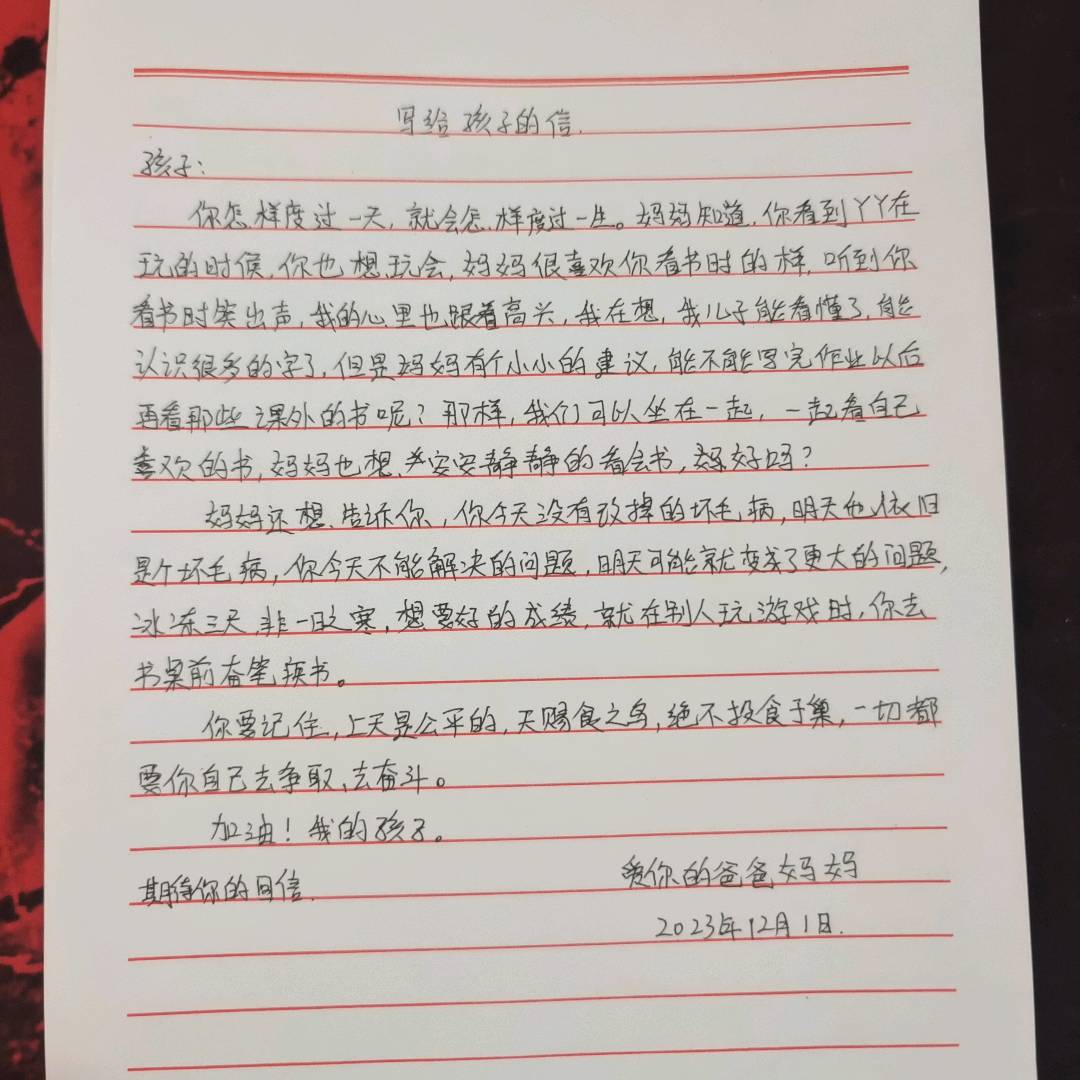 写给孩子的信.
孩子:
你怎样度过一天,就会怎样度过一生。妈妈知道,你看到丫丫在
玩的时候,你也想玩会,妈妈很喜欢你看书时的样,听到你
看书时笑出声,我的心里也跟着高兴,我在想,我儿子能看懂了,能
认识很多的字了,但是妈妈有个小小的建议,能不能写完作业以后
再看那些课外的书呢?那样,我们可以坐在一起,一起看自己
喜欢的书,妈妈也想安安静静的看会书,好吗?
妈妈还想告诉你,你今天没有改掉的坏毛病,明天也依旧
是个坏毛病,你今天不能解决的问题,明天可能就变成了更大的问题,
冰冻三尺,非一日之寒,想要好的成绩,就在别人玩游戏时,你去
书桌前奋笔疾书。
你要记住,上天是公平的,天赐食之鸟,绝不投食于巢,一切都
要你自己去争取、去奋斗。
加油!我的孩子。
期待你的回信.
爱你的爸爸妈妈
2023年12月1日.